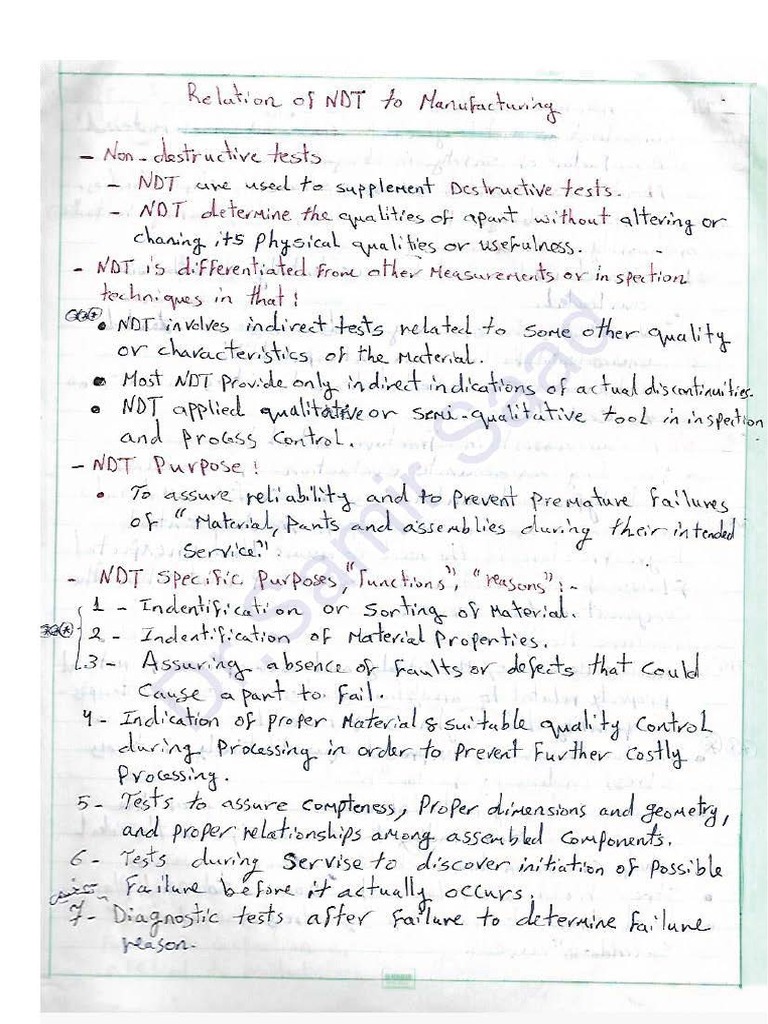 Relation of NDT to Manufacturing
- Non-destructive tests
- NDT are used to supplement Destructive tests.
- NDT determine the qualities of apart without altering or
chaning its Physical qualities or usefulness.
- NDT is differentiated from other Measurements or inspection
techniques in that:
• NDT involves indirect tests related to some other quality
or characteristics of the Material.
• Most NDT Provide only indirect indications of actual discontinuities.
• NDT applied qualitative or semi-qualitative tool in inspection
and Process Control.
- NDT Purpose:
• To assure reliability and to prevent premature failures
of "Material, parts and assemblies during their intended
service."
- NDT Specific Purposes, "functions", "reasons":-
1 - Indentification or sorting of Material.
2 - Indentification of Material Properties.
3 - Assuring absence of faults or defects that could
Cause a part to fail.
4 - Indication of Proper Material & suitable quality control
during Processing in order to Prevent Further Costly
Processing.
5 - Tests to assure compteness, Proper dimensions and geometry,
and proper relationships among assembled components.
6 - Tests during Servise to discover initiation of Possible
Failure before it actually occurs.
7 - Diagnostic tests after Failure to determine Failure
reason.
Dr. Samir Saad